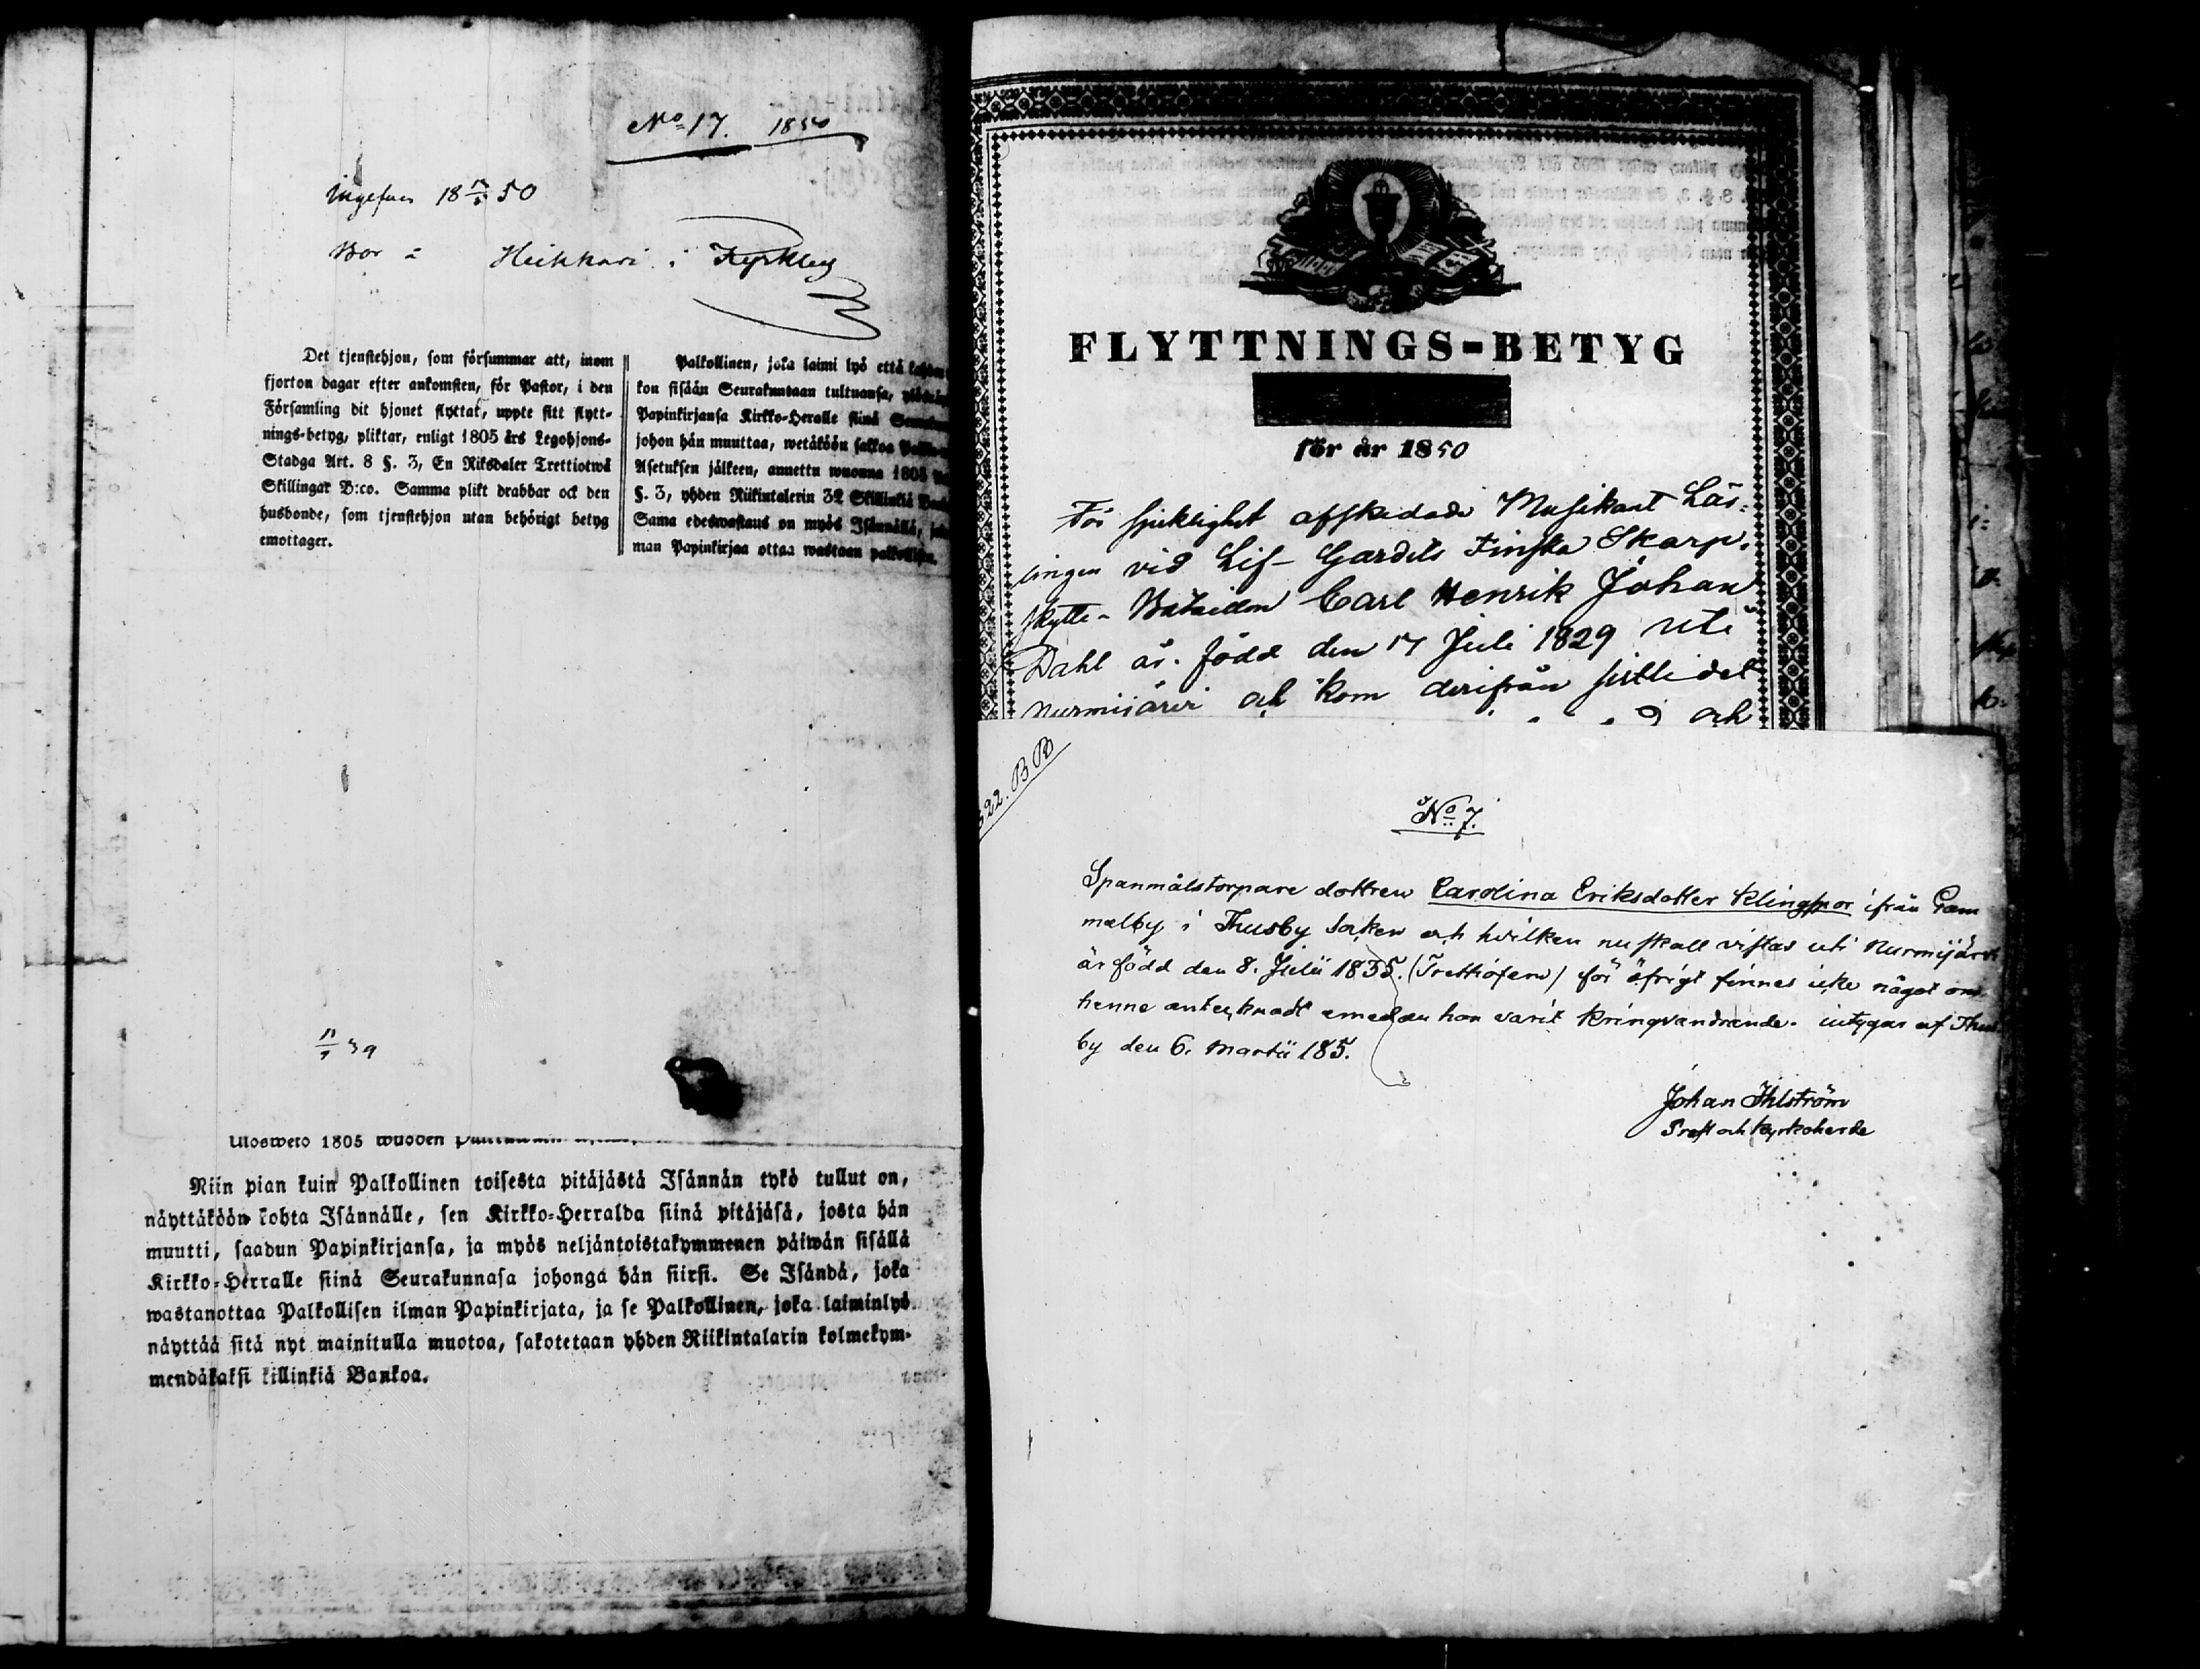 No 17. 1850
18 50
Bor i Heikkari i Kyrkby
Det tjenstehjon, som försummar att, inom
fjorton dagar efter ankomsten, för Pastor, i den
Församling dit hjonet flyttat, uppte sitt flytt-
nings-betyg, pliktar, enligt 1805 års Legohjons-
Stadga Art. 8 §. 3, En Riksdaler Trettiotwå
Skillingar B:co. Samma plikt drabbar ock den
husbonde, som tjenstehjon utan behörigt betyg
emottager.
Palkollinen, joka laimi lyö että
kon sisään Seurakuntaan tultuansa,
Papinkirjansa Kirkko-Heralle siinä
johon hän muuttaa, wetäköön sakkoa
Asetuksen jälkeen, annettu wuonna 1805
§. 3, yhden Riikintalerin 32 Skillinkiä
Sama edeswastaus on myös Isännällä,
man Papinkirjaa ottaa wastaan palkollisen.
39
Ulosweto 1805 wuoden
Niin pian kuin Palkollinen toisesta pitäjästä Isännän tykö tullut on,
näyttäköön kohta Isännälle, sen Kirkko-Herralda siinä pitäjäsä, josta hän
muutti, saadun Papinkirjansa, ja myös neljäntoistakymmenen päiwän sisällä
Kirkko-Herralle siinä Seurakunnasa johonga hän siirsi. Se Isändä, joka
wastanottaa Palkollisen ilman Papinkirjata, ja se Palkollinen, joka laiminlyö
näyttää sitä nyt mainitulla muotoa, sakotetaan yhden Riikintalarin kolmekym-
mendäkaksi killinkiä Bankoa.
FLYTTNINGS-BETYG
för år 1850
För sjuklighet afskedade Musikant Lär-
lingen vid Lif-Gardets Finska Skarp-
skytte-Bataillon Carl Henrik Johan
Dahl är född den 17 Juli 1829 uti
Nurmijärvi och kom derifrån sistlidet
och
522. BB
No 7.
Spanmålstorpare dottren Carolina Eriksdotter Klingspor ifrån Gam
melby i Thusby Socken och hvilken nu skall vistas uti Nurmijärvi
är född den 8. Julii 1835. (Trettiofem) för öfrigt finnes icke något om
henne antecknadt emedan hon varit kringvandrande. intygar af Thus
by den 6. Martii 185.
Johan Ihlström
Prost och Kyrkoherde